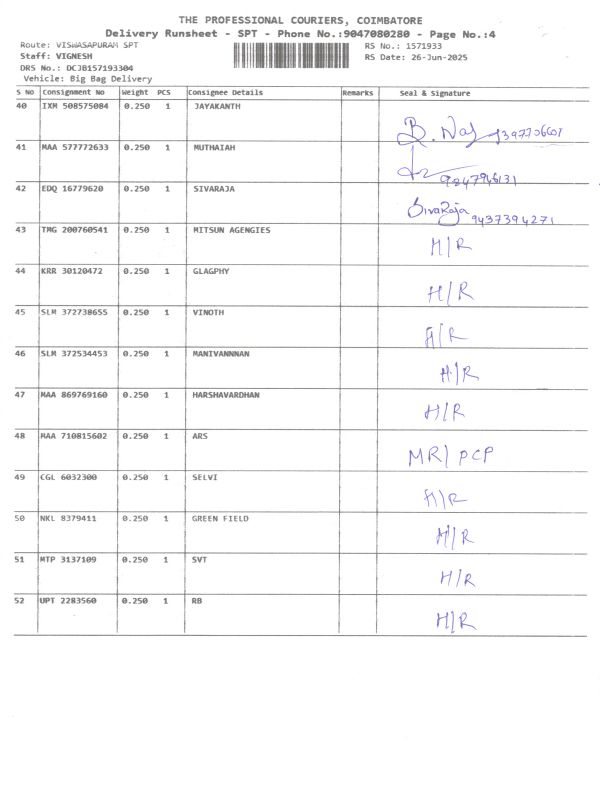 THE PROFESSIONAL COURIERS, COIMBATORE
Delivery Runsheet - SPT - Phone No.:9047080280 - Page No.:4
Route: VISWASAPURAM SPT RS No.: 1571933
Staff: VIGNESH RS Date: 26-Jun-2025
DRS No.: DCJB157193304
Vehicle: Big Bag Delivery
S No Consignment No Weight PCS Consignee Details Remarks Seal & Signature
40 IXM 508575084 0.250 1 JAYAKANTH
41 MAA 577772633 0.250 1 MUTHAIAH
42 EDQ 16779620 0.250 1 SIVARAJA SivaRaja 9437394271
43 TMG 200760541 0.250 1 MITSUN AGENGIES H/R
44 KRR 30120472 0.250 1 GLAGPHY H/R
45 SLM 372738655 0.250 1 VINOTH H/R
46 SLM 372534453 0.250 1 MANIVANNNAN H/R
47 MAA 869769160 0.250 1 HARSHAVARDHAN H/R
48 MAA 710815602 0.250 1 ARS MR/ PCP
49 CGL 6032300 0.250 1 SELVI H/R
50 NKL 8379411 0.250 1 GREEN FIELD H/R
51 MTP 3137109 0.250 1 SVT H/R
52 UPT 2283560 0.250 1 RB H/R